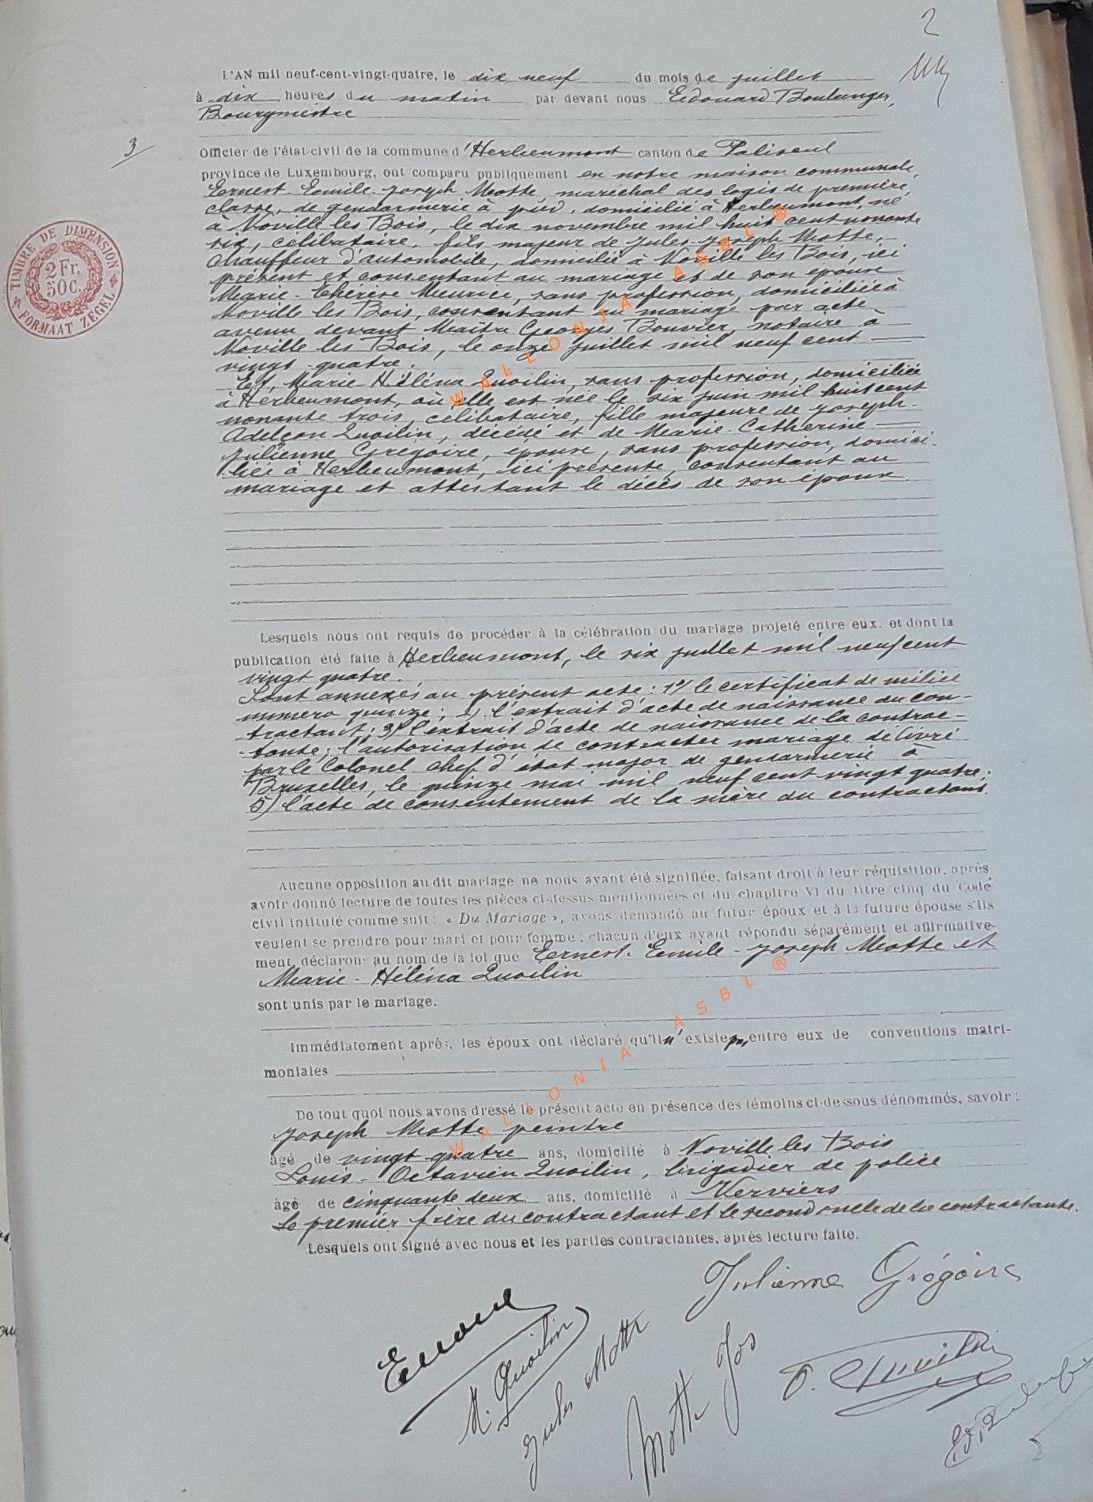 2
L'AN mil neuf-cent-vingt-quatre, le dix neuf du mois de juillet
à dix heures du matin par devant nous Edouard Boulanger,
Bourgmestre
3
Officier de l'état-civil de la commune d'Herbeumont canton de Paliseul
province de Luxembourg, ont comparu publiquement en notre maison communale,
Ernest Emile Joseph Motte, maréchal des logis de première
classe, de gendarmerie à pied, domicilié à Herbeumont, né
à Noville les Bois, le dix novembre mil huit cent nonante
six, célibataire, fils majeur de Jules Joseph Motte,
chauffeur d'automobile, domicilié à Noville les Bois, ici
présent et consentant au mariage et de son épouse
Marie-Thérèse Meurice, sans profession, domiciliée à
Noville les Bois, consentant au mariage par acte
avenu devant Maître Georges Bouvier, notaire à
Noville les Bois, le onze juillet mil neuf cent
vingt-quatre.
Et, Marie Héléna Quoilin, sans profession, domiciliée
à Herbeumont où elle est née le six juin mil huit cent
nonante trois, célibataire, fille majeure de Joseph
Quoilin, décédé et de Marie-Catherine
Julienne Grégoire, épouse, sans profession, domici-
liée à Herbeumont, ici présente, consentant au
mariage et attestant le décès de son époux.
Lesquels nous ont requis de procéder à la célébration du mariage projeté entre eux, et dont la
publication été faite à Herbeumont, le six juillet mil neuf cent
vingt quatre.
Sont annexés au présent acte: 1°) le certificat de milice
numéro quinze; 2) l'extrait d'acte de naissance du con-
tractant; 3) l'extrait d'acte de naissance de la contrac-
tante; l'autorisation de contracter mariage délivré
par le Colonel chef d'état major de gendarmerie à
Bruxelles, le quinze mai mil neuf cent vingt quatre;
5) l'acte de consentement de la mère du contractant.
Aucune opposition au dit mariage ne nous ayant été signifiée, faisant droit à leur réquisition, après
avoir donné lecture de toutes les pièces ci-dessus mentionnées et du chapitre VI du titre cinq du Code
civil intitulé comme suit: « Du Mariage », avons demandé au futur époux et à la future épouse s'ils
veulent se prendre pour mari et pour femme; chacun d'eux ayant répondu séparément et affirmative-
ment, déclarons au nom de la loi que Ernest-Emile-Joseph Motte et
Marie-Héléna Quoilin
sont unis par le mariage.
Immédiatement après, les époux ont déclaré qu'il n'existe pas entre eux de conventions matri-
moniales
De tout quoi nous avons dressé le présent acte en présence des témoins ci-dessous dénommés, savoir:
Joseph Motte, peintre
âgé de vingt quatre ans, domicilié à Noville les Bois
Louis-Octavien Quoilin, brigadier de police
âgé de cinquante deux ans, domicilié à Verviers
Le premier frère du contractant et le second oncle de la contractante.
Lesquels ont signé avec nous et les parties contractantes, après lecture faite.
Julienne Grégoire
M. Quoilin
Jules Motte
Motte Jos
O. Quoilin
TIMBRE DE DIMENSION
2 Fr.
50c.
FORMAAT ZEGEL
WALLONIA ASBL ®
WALLONIA ASBL ®